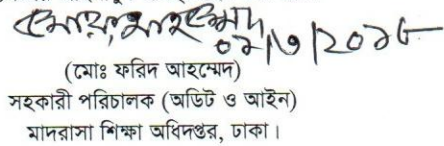 ০১/৩/২০১৮
(মোঃ ফরিদ আহম্মেদ)
সহকারী পরিচালক (অডিট ও আইন)
মাদরাসা শিক্ষা অধিদপ্তর, ঢাকা।